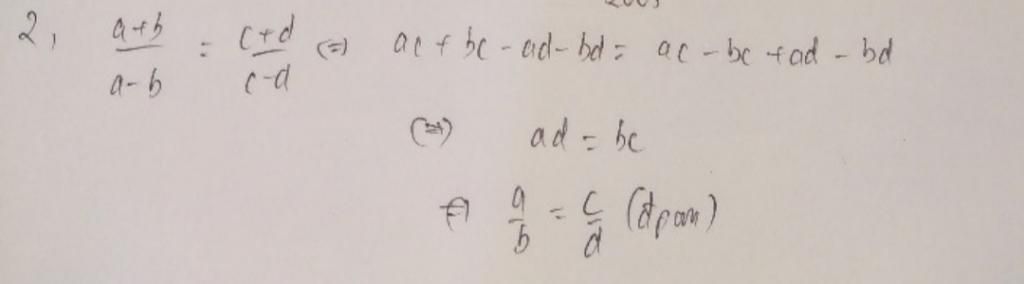 2, a+b/a-b = c+d/c-d <=> ac + bc - ad - bd = ac - bc + ad - bd
<=> ad = bc
<=> a/b = c/d (đpcm)